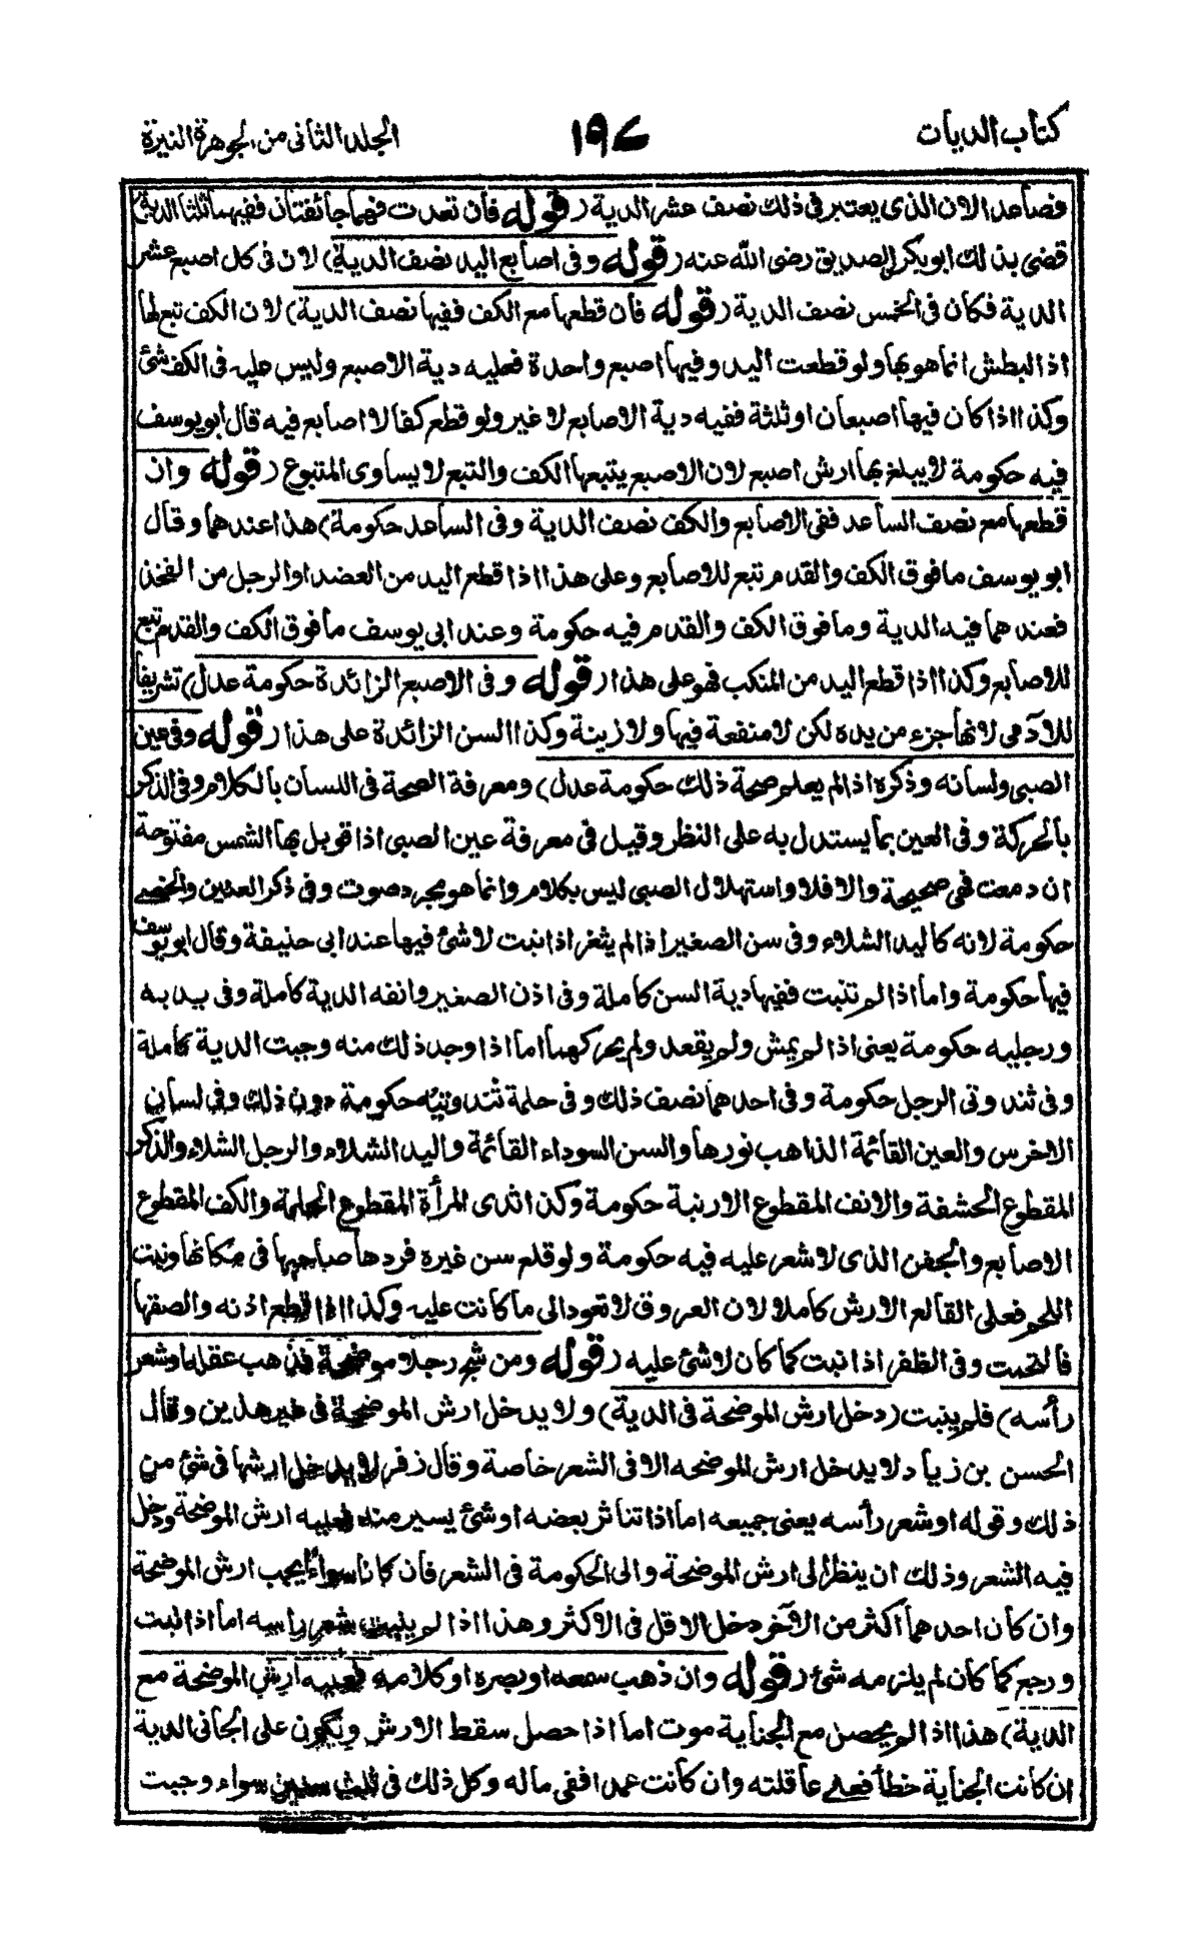 كتاب الديات
١٩٧
الجلد الثانى من الجوهرة النيرة
فصاعدا لان الذى يعتبر فى ذلك نصف عشر الدية (قوله فان نفذت فهما جائفتان ففيهما ثلثا الدية)
قضى بذلك ابوبكر الصديق رضى الله عنه (قوله وفى اصابع اليد نصف الدية) لان فى كل اصبع عشر
الدية فكان فى الخمس نصف الدية (قوله فان قطعها مع الكف ففيها نصف الدية) لان الكف تبع لها
اذ البطش انما هو بها ولو قطعت اليد وفيها اصبع واحدة فعليه دية الاصبع وليس عليه فى الكف شئ
وكذا اذا كان فيها اصبعان او ثلثة ففيه دية الاصابع لا غير ولو قطع كفا لا اصابع فيه قال ابو يوسف
فيه حكومة لا يبلغ بها ارش اصبع لان الاصبع يتبعها الكف والتبع لا يساوى المتبوع (قوله وان
قطعها مع نصف الساعد ففى الاصابع والكف نصف الدية وفى الساعد حكومة) هذا عندهما وقال
ابو يوسف ما فوق الكف والقدم تبع للاصابع وعلى هذا اذا قطع اليد من العضد او الرجل من الفخذ
فعندهما فيه الدية وما فوق الكف والقدم فيه حكومة وعند ابى يوسف ما فوق الكف والقدم تبع
للاصابع وكذا اذا قطع اليد من المنكب فهو على هذا (قوله وفى الاصبع الزائدة حكومة عدل) تشريفا
للآدمى لانها جزء من يده لكن لا منفعة فيها ولا زينة وكذا السن الزائدة على هذا (قوله وفى عين
الصبى ولسانه وذكره اذا لم يعلم صحة ذلك حكومة عدل) ومعرفة الصحة فى اللسان بالكلام وفى الذكر
بالحركة وفى العين بما يستدل به على النظر وقيل فى معرفة عين الصبى اذا قوبل بها الشمس مفتوحة
ان دمعت فهى صحيحة والا فلا واستهلال الصبى ليس بكلام وانما هو مجرد صوت وفى ذكر العنين والخصى
حكومة لانه كاليد الشلاء وفى سن الصغير اذا لم يثغر اذا نبت لا شئ فيها عند ابى حنيفة وقال ابو يوسف
فيها حكومة واما اذا لم تنبت ففيها دية السن كاملة وفى اذن الصغير وانفه الدية كاملة وفى يديه
ورجليه حكومة يعنى اذا لم يمش ولم يقعد ولم يحركهما اما اذا وجد ذلك منه وجبت الدية كاملة
وفى ثندوتى الرجل حكومة وفى احدهما نصف ذلك وفى حلمة ثندوتيه حكومة دون ذلك وفى لسان
الاخرس والعين القائمة الذاهب نورها والسن السوداء القائمة واليد الشلاء والرجل الشلاء والذكر
المقطوع الحشفة والانف المقطوع الارنبة حكومة وكذا ثدى المرأة المقطوع الحلمة والكف المقطوع
الاصابع والجفن الذى لا شعر عليه فيه حكومة ولو قلع سن غيره فردها صاحبها فى مكانها ونبت
اللحم فعلى القالع الارش كاملا لان العروق لا تعود الى ما كانت عليه وكذا اذا قطع اذنه والصقها
فالتحمت وفى الظفر اذا نبت كما كان لا شئ عليه (قوله ومن شج رجلا موضحة فذهب عقله او شعر
رأسه) فلم ينبت (دخل ارش الموضحة فى الدية) ولا يدخل ارش الموضحة فى غير هذين وقال
الحسن بن زياد لا يدخل ارش الموضحه الا فى الشعر خاصة وقال زفر لا يدخل ارشها فى شئ من
ذلك وقوله او شعر رأسه يعنى جميعه اما اذا تناثر بعضه او شئ يسير منه فعليه ارش الموضحة ودخل
فيه الشعر وذلك ان ينظر الى ارش الموضحة والى الحكومة فى الشعر فان كانا سواء يجب ارش الموضحة
وان كان احدهما اكثر من الآخر دخل الاقل فى الاكثر وهذا اذا لم ينبت شعر رأسه اما اذا نبت
ورجع كما كان لم يلزمه شئ (قوله وان ذهب سمعه او بصره او كلامه فعليه ارش الموضحة مع
الدية) هذا اذا لم يحصل مع الجناية موت اما اذا حصل سقط الارش ويكون على الجانى الدية
ان كانت الجناية خطأ فعلى عاقلته وان كانت عمدا ففى ماله وكل ذلك فى ثلث سنين سواء وجبت